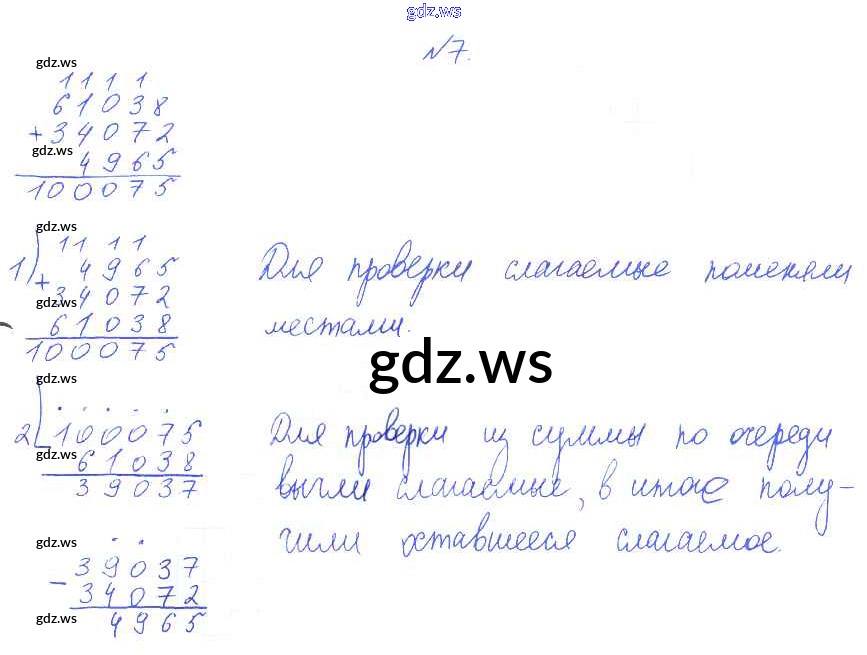 gdz.ws
№7.
gdz.ws
1 1 1 1
6 1 0 3 8
+ 3 4 0 7 2
gdz.ws
4 9 6 5
1 0 0 0 7 5
gdz.ws
1 1 1 1
1) + 4 9 6 5
3 4 0 7 2
gdz.ws
6 1 0 3 8
1 0 0 0 7 5
Для проверки слагаемые поменяли
местами.
gdz.ws
gdz.ws
2 1 0 0 0 7 5
gdz.ws
6 1 0 3 8
3 9 0 3 7
Для проверки из суммы по очереди
вычли слагаемые, в итоге полу-
чили оставшееся слагаемое.
gdz.ws
- 3 9 0 3 7
gdz.ws
3 4 0 7 2
gdz.ws
4 9 6 5